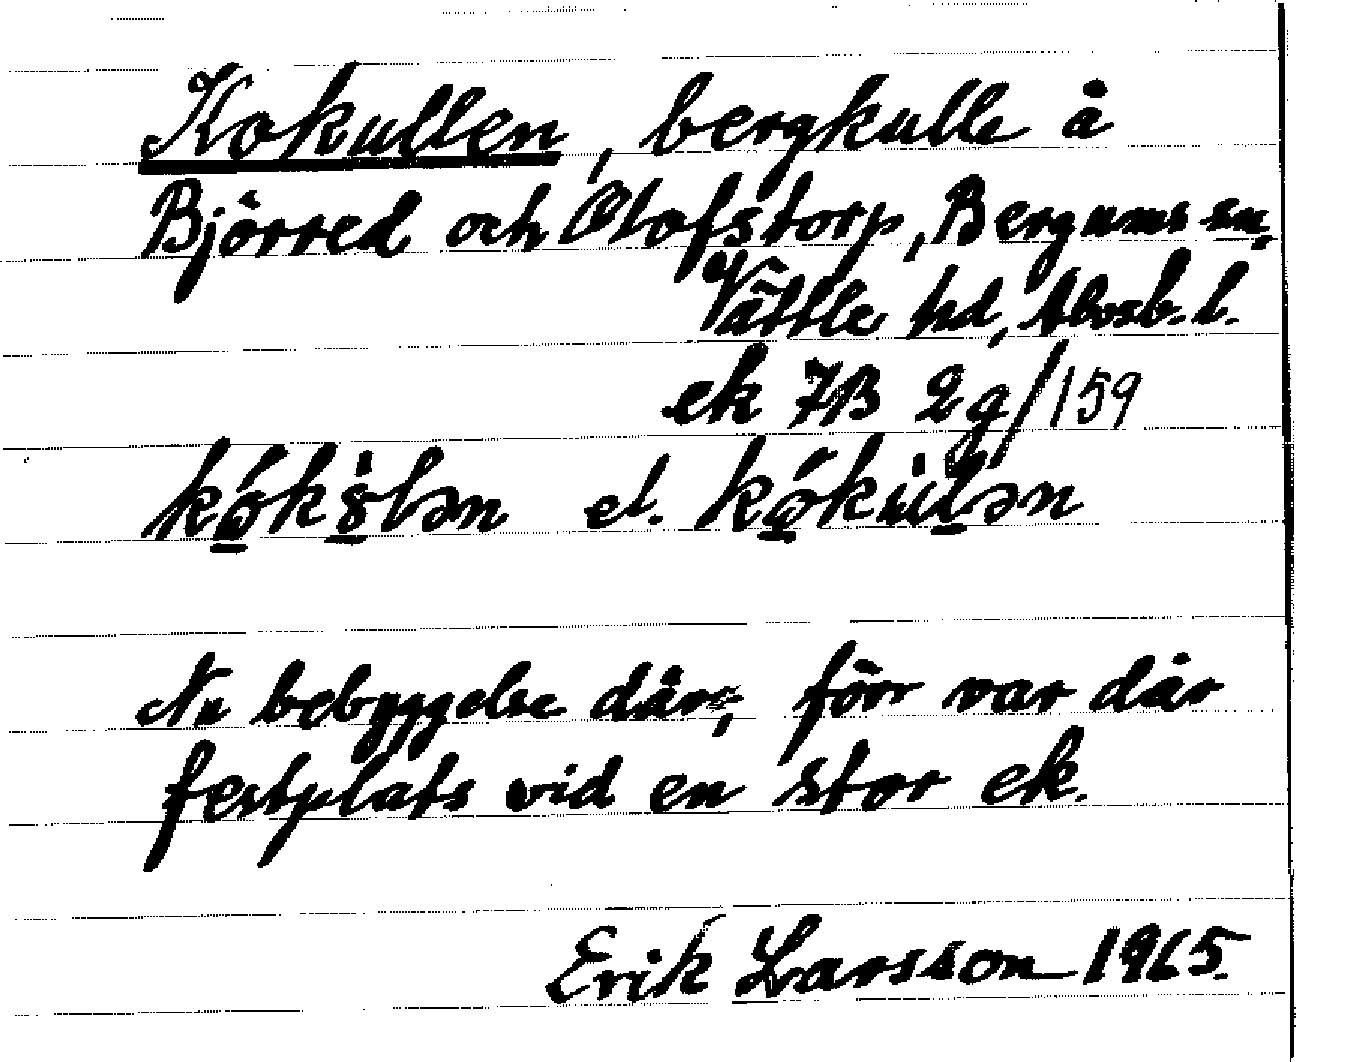 Kokullen, bergkulle å
Björred och Olofstorp, Bergums sn,
Vättle hd, Älvsb. l.
ek 7B 2g/159
el.
Nu bebyggelse där, förr var där
festplats vid en stor ek.
Erik Larsson 1965